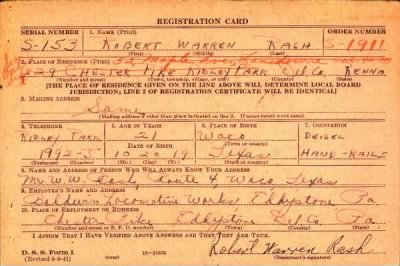 REGISTRATION CARD
SERIAL NUMBER 1. NAME (Print) ORDER NUMBER
S-153 ROBERT WARREN RASH S-1911
(First) (Middle) (Last)
2. PLACE OF RESIDENCE (Print)
229 CHESTER PIKE RIDLEY PARK Del Co. PENNA
[THE PLACE OF RESIDENCE GIVEN ON THE LINE ABOVE WILL DETERMINE LOCAL BOARD
JURISDICTION; LINE 2 OF REGISTRATION CERTIFICATE WILL BE IDENTICAL]
3. MAILING ADDRESS
Same
[Mailing address if other than place indicated on line 2. If same insert word same]
4. TELEPHONE 5. AGE IN YEARS 6. PLACE OF BIRTH 7. OCCUPATION
RIDLEY PARK 21 WACO DEISEL
DATE OF BIRTH
1992-J 10 20 19 TEXAS HAND-RAILS
(Exchange) (Number) (Mo.) (Day) (Yr.) (State or country)
8. NAME AND ADDRESS OF PERSON WHO WILL ALWAYS KNOW YOUR ADDRESS
Mr. W. W. Rash, Route 4, Waco, Texas
9. EMPLOYER'S NAME AND ADDRESS
Baldwin Locomotive Works, Eddystone Pa
10. PLACE OF EMPLOYMENT OR BUSINESS
Chester Pike Eddystone Del Co. Pa.
(Street and number or R. F. D. number) (Town) (County) (State)
I AFFIRM THAT I HAVE VERIFIED ABOVE ANSWERS AND THAT THEY ARE TRUE.
D. S. S. Form 1
(Revised 6-9-41) 16—21630 Robert Warren Rash